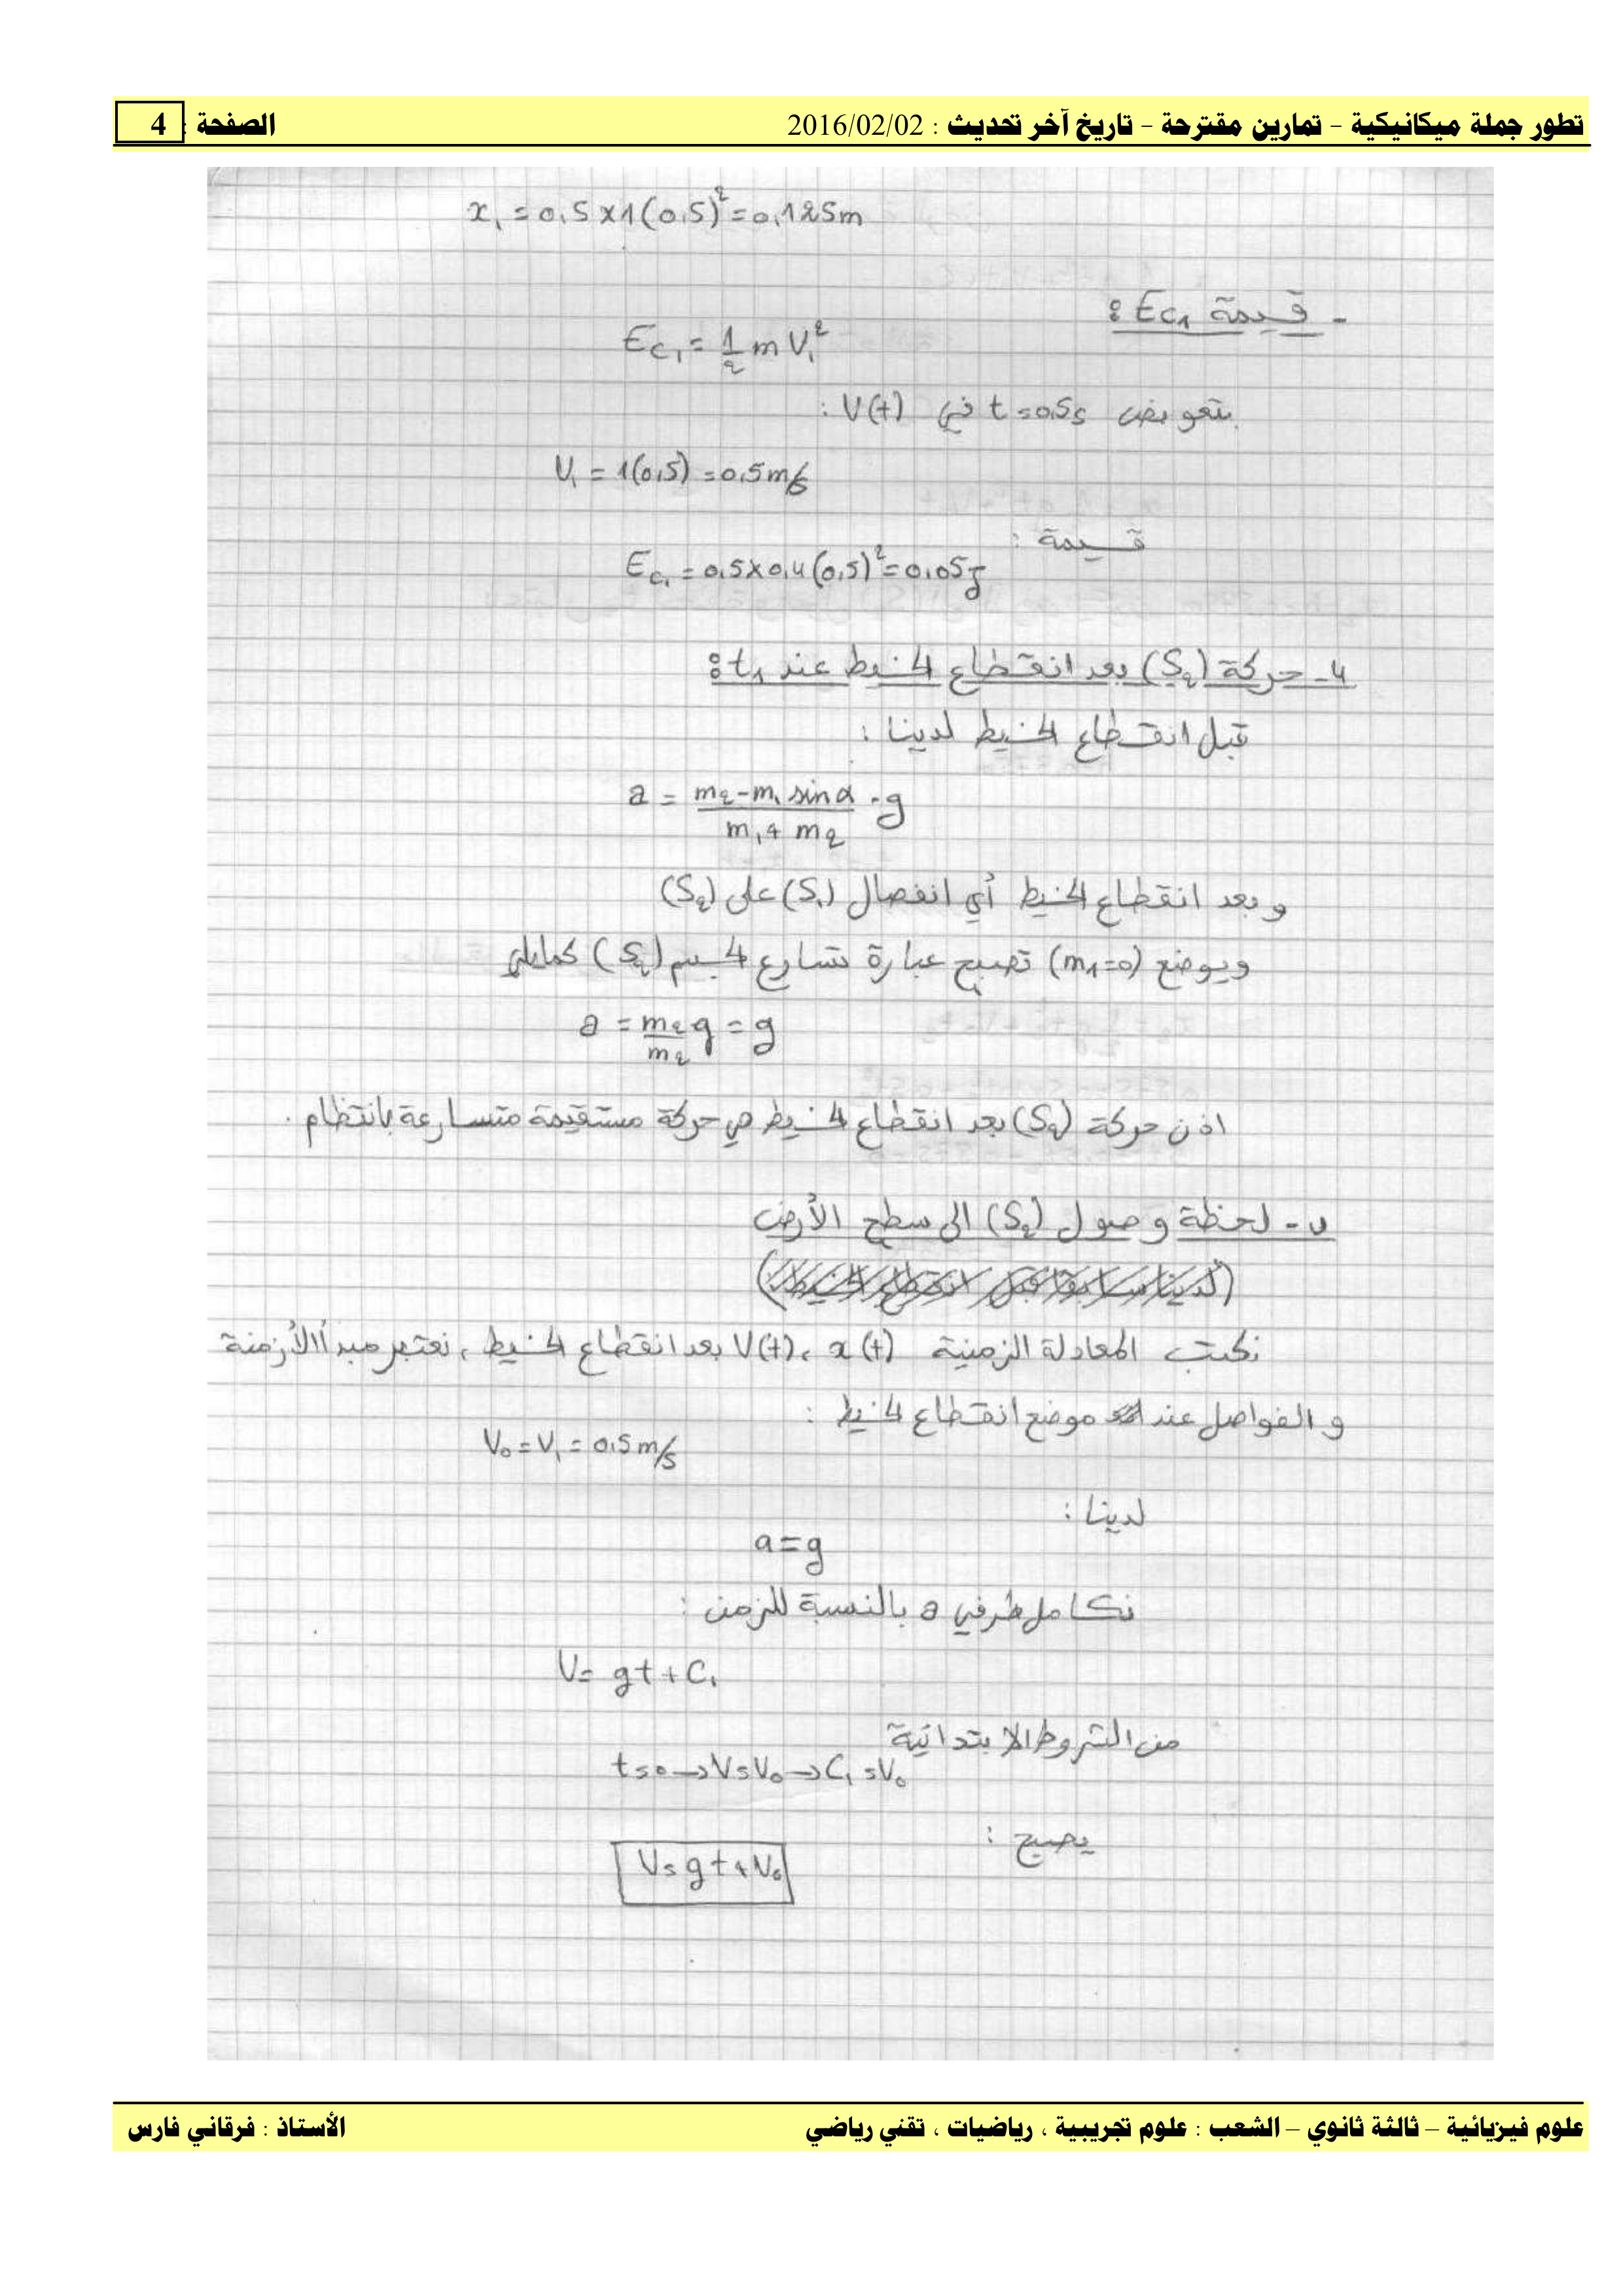 تطور جملة ميكانيكية – تمارين مقترحة – تاريخ آخر تحديث : 2016/02/02 الصفحة : 4
x₁ = 0,5 x 1(0,5)² = 0,125m
- قيمة Ec₁ :
Ec₁ = 1/2 m V₁²
بتعويض t = 0,5s في V(t) :
V₁ = 1(0,5) = 0,5 m/s
قيمة :
Ec₁ = 0,5 x 0,4 (0,5)² = 0,05 J
4- حركة (S₂) بعد انقطاع الخيط عند t₁ :
قبل انقطاع الخيط لدينا :
a = (m₂ - m₁ sin α)/(m₁ + m₂) . g
و بعد انقطاع الخيط أي انفصال (S₁) على (S₂)
وبوضع (m₁=0) تصبح عبارة تسارع الجسم (S₂) كمايلي
a = m₂/m₂ g = g
اذن حركة (S₂) بعد انقطاع الخيط هي حركة مستقيمة متسارعة بانتظام .
ب - لحظة وصول (S₂) الى سطح الأرض
نكتب المعادلة الزمنية x(t) ، V(t) بعد انقطاع الخيط ، نعتبر مبدأ الأزمنة
و الفواصل عند موضع انقطاع الخيط :
V₀ = V₁ = 0,5 m/s
لدينا :
a = g
نكامل طرفي a بالنسبة للزمن :
V = gt + C₁
من الشروط الابتدائية
t = 0 → V = V₀ → C₁ = V₀
يصبح :
V = gt + V₀
علوم فيزيائية – ثالثة ثانوي – الشعب : علوم تجريبية ، رياضيات ، تقني رياضي الأستاذ : فرقاني فارس